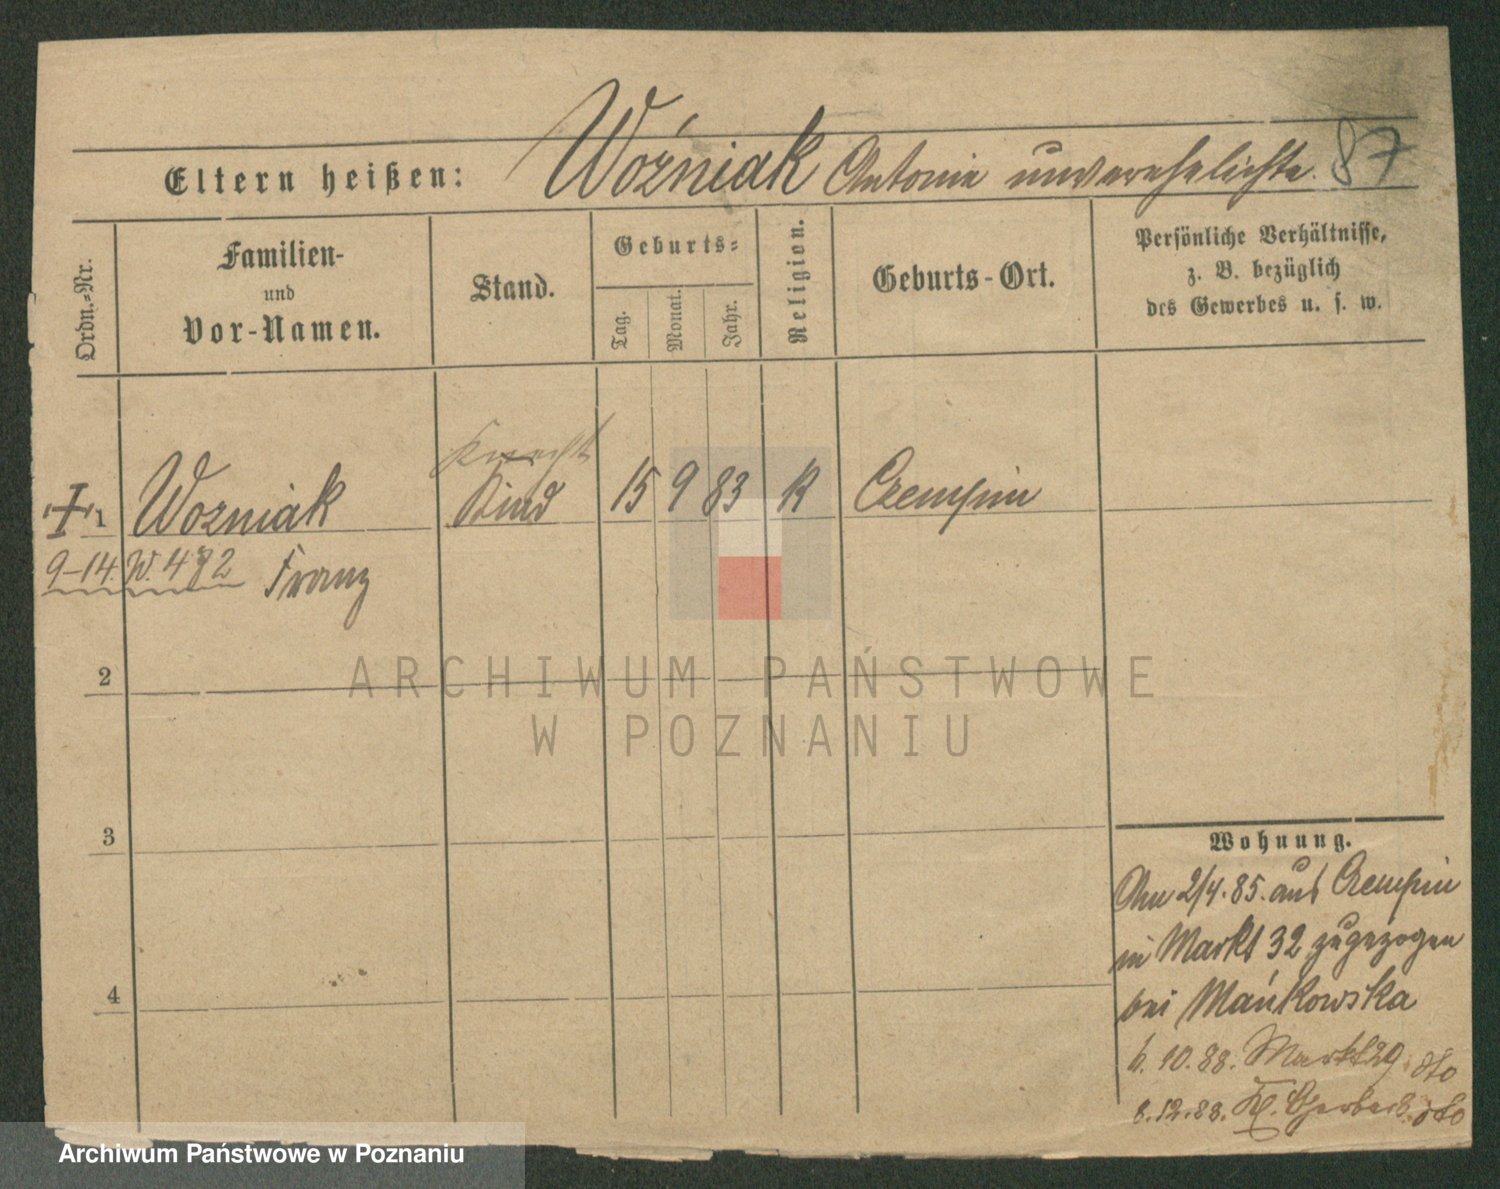 Eltern heißen: Woźniak Antonie unverehelichte. 87
Ordn.-Nr.
Familien-
und
Vor-Namen.
Stand.
Geburts-
Tag.
Monat.
Jahr.
Religion.
Geburts-Ort.
Persönliche Verhältnisse,
z. B. bezüglich
des Gewerbes u. s. w.
Knecht
1 Wozniak Kind 15 9 83 K Czempin
9-14. W. 472 Franz
2
3
4
Wohnung.
Am 2/4.85. aus Czempin
in Markt 32 zugezogen
bei Mańkowska
6.10.88. Markt 29 dto
8.12.88. Kl. Gerberst. dto
ARCHIWUM PAŃSTWOWE
W POZNANIU
Archiwum Państwowe w Poznaniu